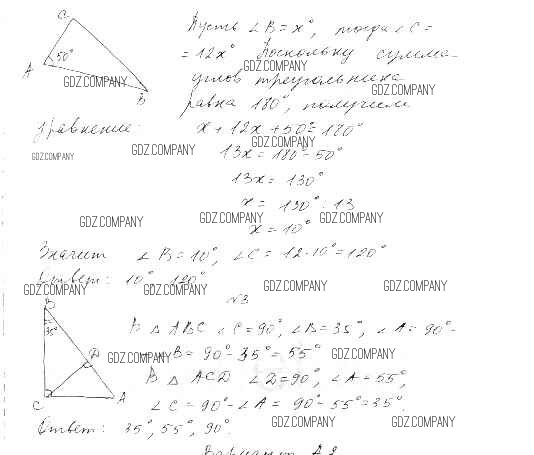 C
Пусть ∠B = x°, тогда ∠C =
A 50°
= 12x° Поскольку сумма
GDZ.COMPANY
углов треугольника
GDZ.COMPANY
GDZ.COMPANY
B
равна 180°, получим
уравнение: x + 12x + 50° = 180°
GDZ.COMPANY
GDZ.COMPANY
GDZ.COMPANY
13x = 180° - 50°
13x = 130°
x = 130° : 13
GDZ.COMPANY
GDZ.COMPANY
GDZ.COMPANY
x = 10°
Значит ∠B = 10°, ∠C = 12·10° = 120°
Ответ: 10°, 120°
GDZ.COMPANY
GDZ.COMPANY
GDZ.COMPANY
GDZ.COMPANY
№3
B
35°
В △ ABC ∠C = 90°, ∠B = 35°, ∠A = 90° -
D
GDZ.COMPANY
B = 90° - 35° = 55°
GDZ.COMPANY
В △ ACD ∠D = 90°, ∠A = 55°,
C
A
∠C = 90° - ∠A = 90° - 55° = 35°.
GDZ.COMPANY
GDZ.COMPANY
Ответ: 35°, 55°, 90°.
Вариант